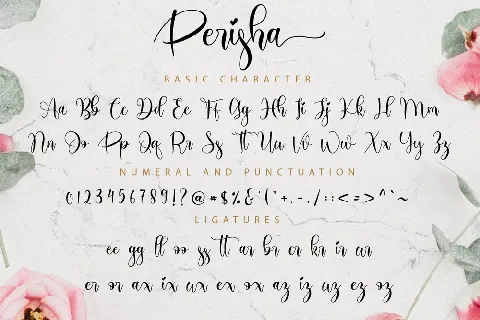 Perisha
BASIC CHARACTER
Aa Bb Cc Dd Ee Ff Gg Hh Ii Jj Kk Ll Mm
Nn Oo Pp Qq Rr Ss Tt Uu Vv Ww Xx Yy Zz
NUMERAL AND PUNCTUATION
0123456789!?@*#$%&'("+,-./:;<=>^`~
LIGATURES
ee gg ll oo ss tt ar br cr kr ir ur
er or ax ix ux ex ox az iz uz ez oz